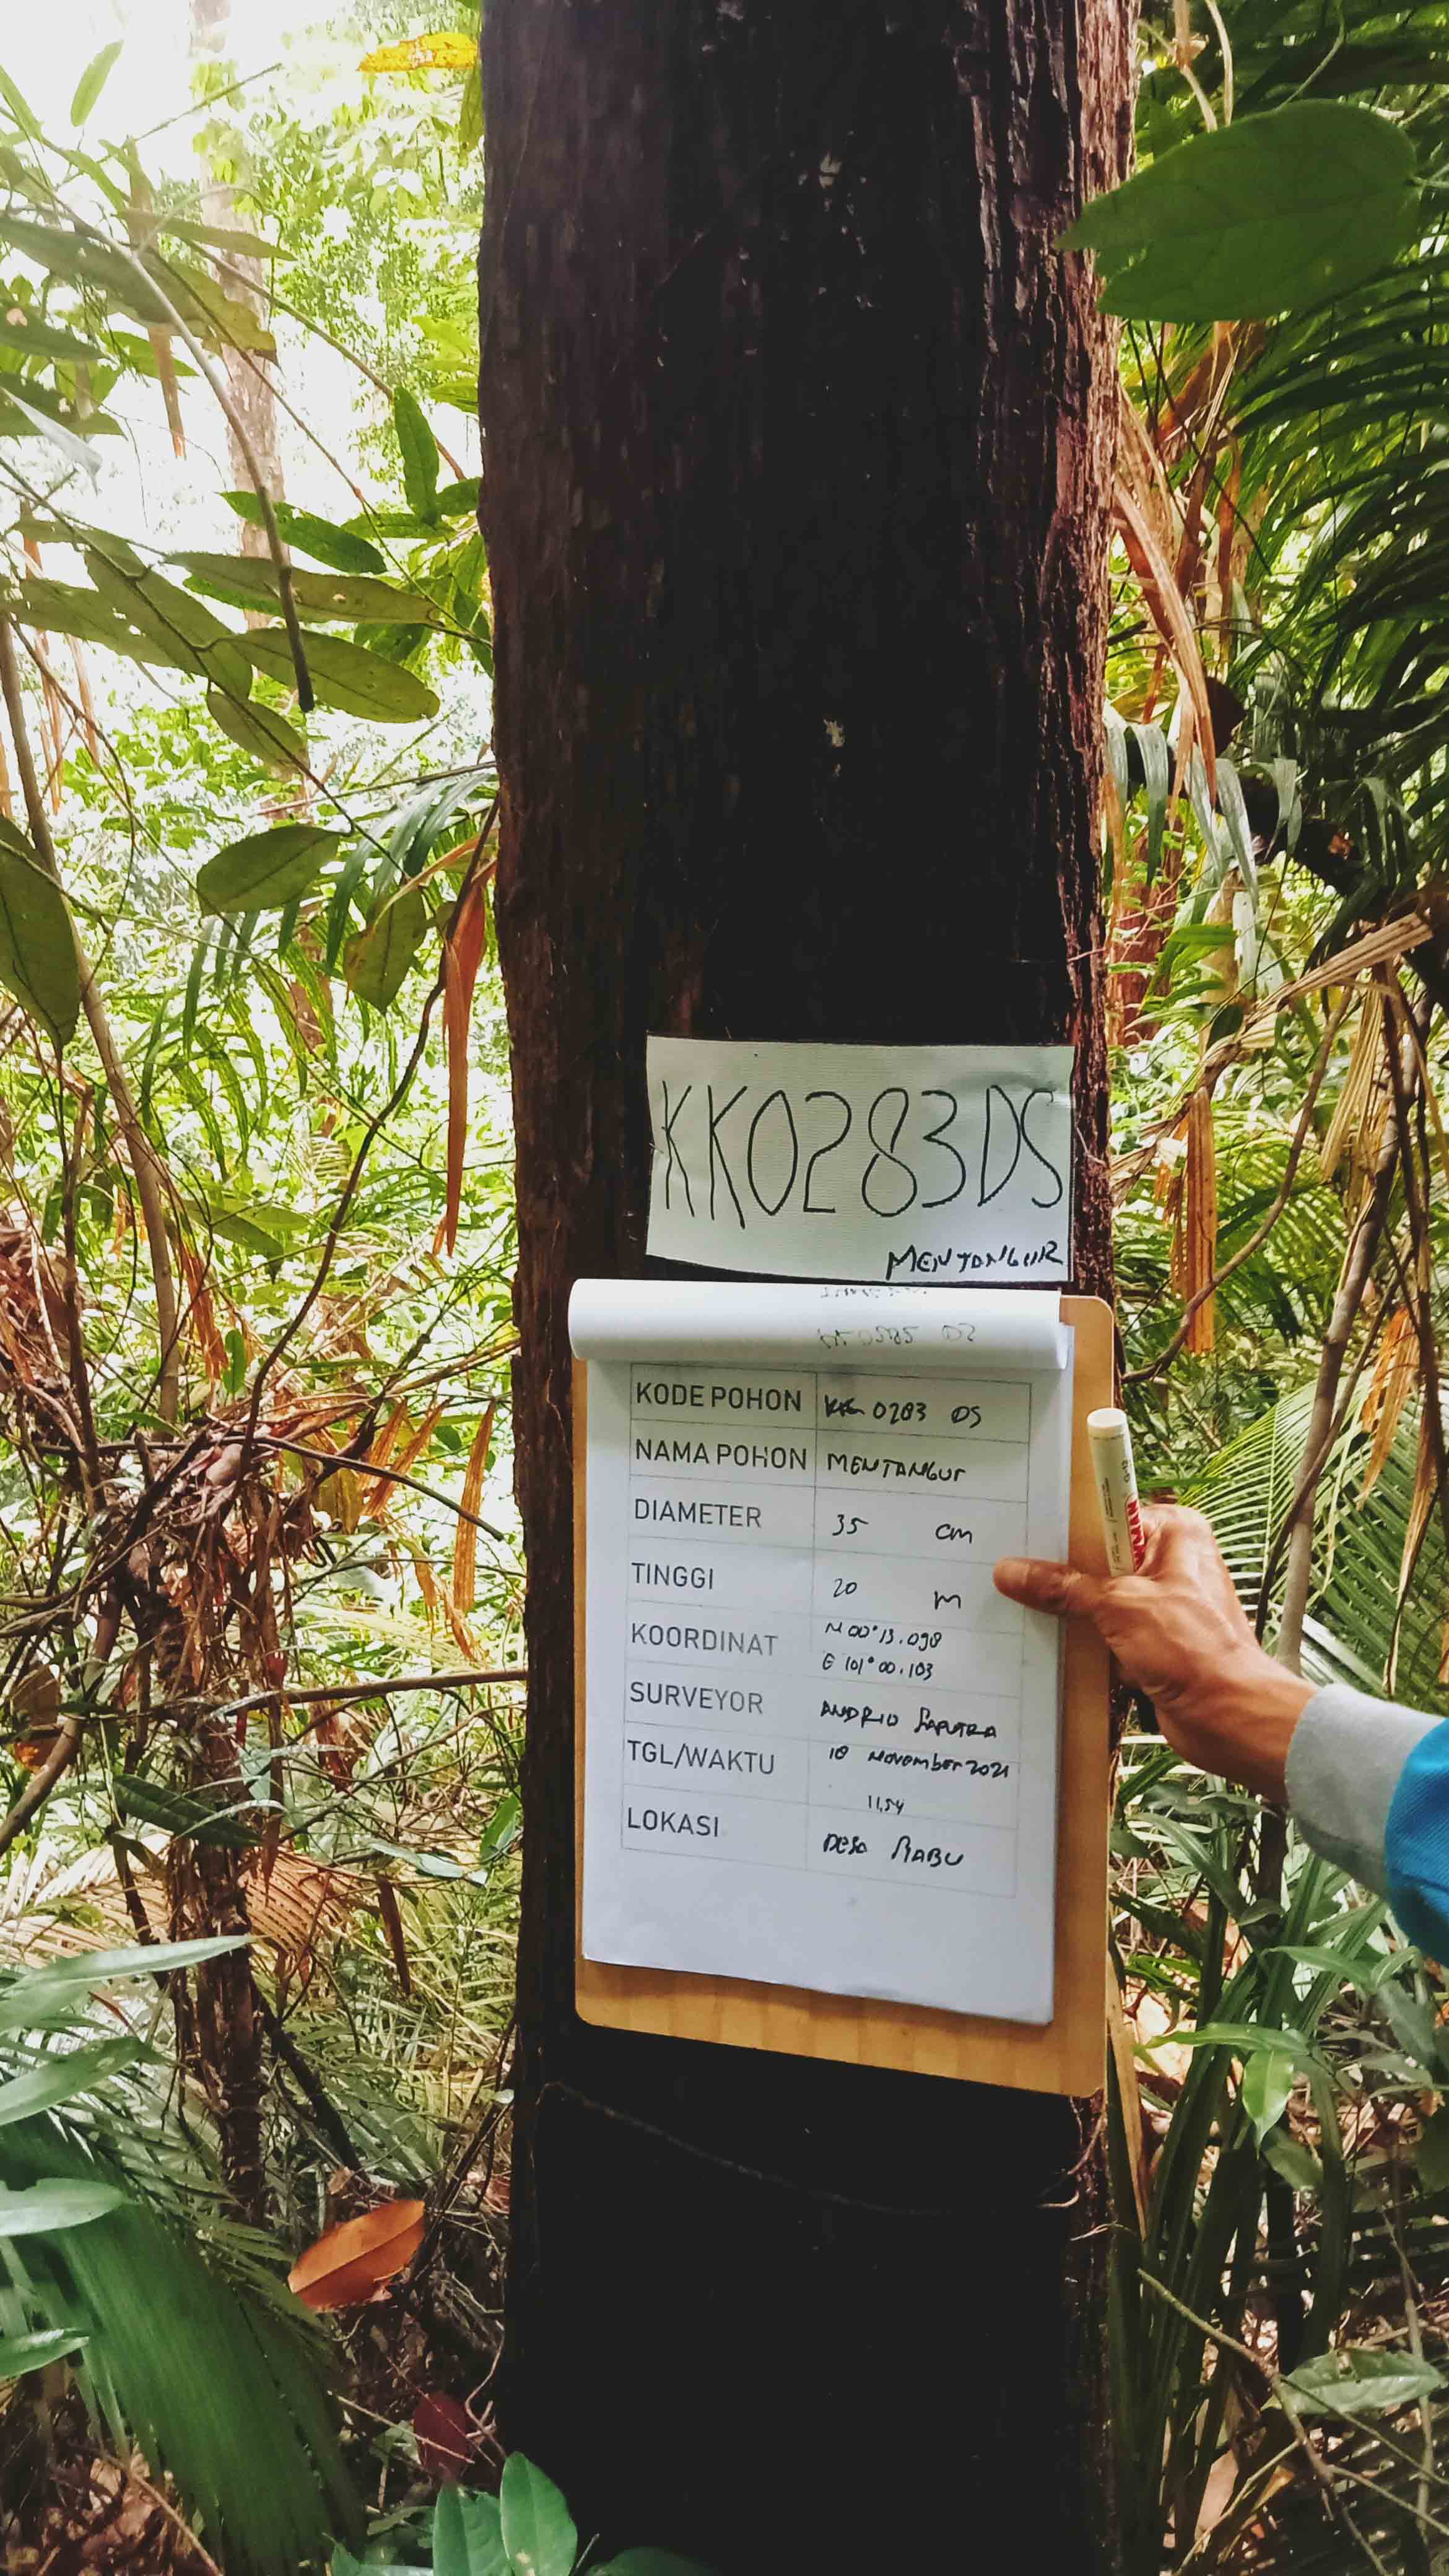 KK0283DS
MENTANGUR
KODE POHON KK 0283 DS
NAMA POHON MENTANGUr
DIAMETER 35 cm
TINGGI 20 m
KOORDINAT N 00° 13.098
E 101° 00.103
SURVEYOR ANDRIO SAPUTRA
TGL/WAKTU 10 November 2021
11.54
LOKASI DESA RABU
SNOWMAN